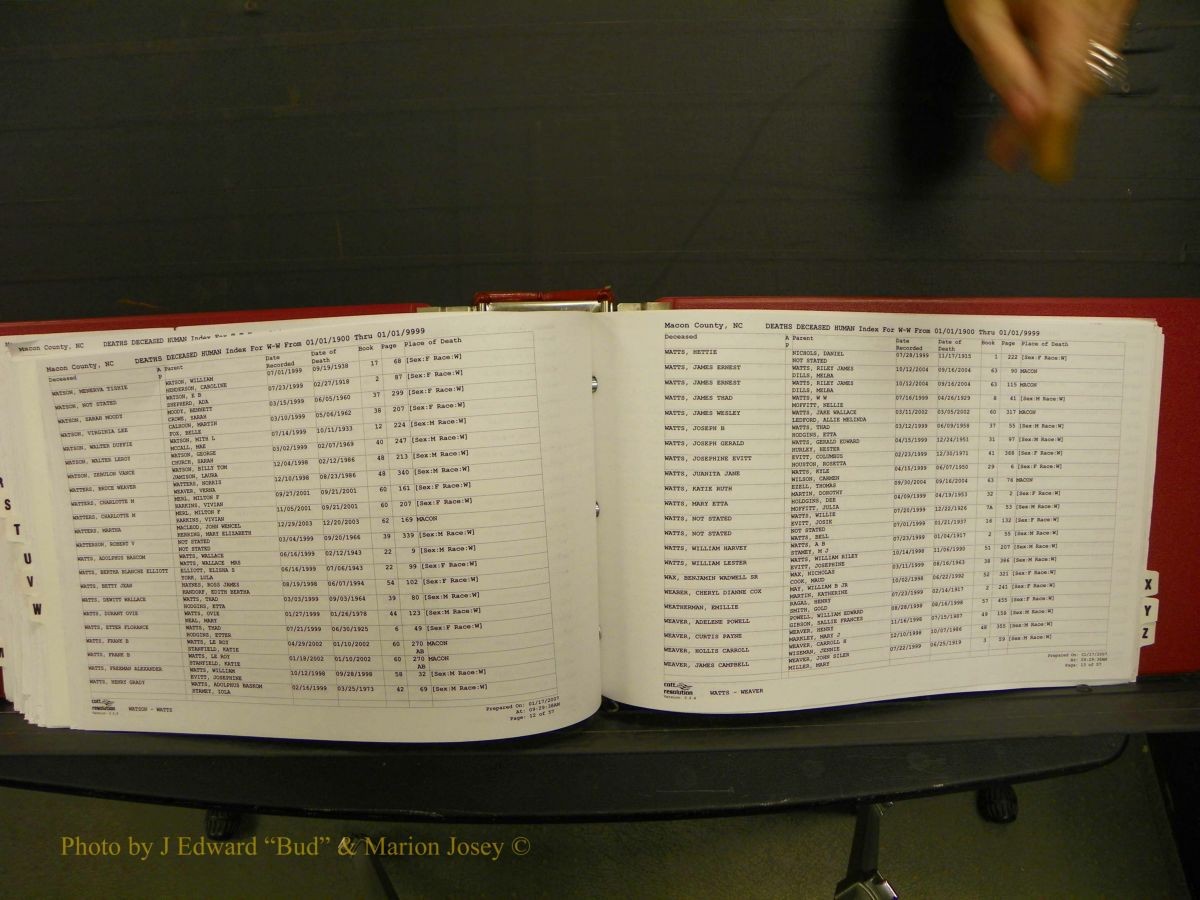 Macon County, NC DEATHS DECEASED HUMAN Index For W-W
Macon County, NC DEATHS DECEASED HUMAN Index For W-W From 01/01/1900 Thru 01/01/9999
Deceased A Parent Date Recorded Date of Death Book Page Place of Death
P
WATSON, MENERVA TISHIE WATSON, WILLIAM 07/01/1999 09/19/1938 17 68 [Sex:F Race:W]
HENDERSON, CAROLINE
WATSON, NOT STATED WATSON, E B 07/23/1999 02/27/1918 2 87 [Sex:F Race:W]
SHEPHERD, ADA
WATSON, SARAH MOODY MOODY, BENNETT 03/15/1999 06/05/1960 37 299 [Sex:F Race:W]
CROWE, SARAH
WATSON, VIRGINIA LEE CALHOUN, MARTIN 03/10/1999 05/06/1962 38 207 [Sex:F Race:W]
FOX, BELLE
WATSON, WALTER DUFFIE WATSON, MITH L 07/14/1999 10/11/1933 12 224 [Sex:M Race:W]
MCCALL, MAE
WATSON, WALTER LEROY WATSON, GEORGE 03/02/1999 02/07/1969 40 247 [Sex:M Race:W]
CHURCH, SARAH
WATSON, ZEBULON VANCE WATSON, BILLY TOM 12/04/1998 02/12/1986 48 213 [Sex:M Race:W]
JAMISON, LAURA
WATTERS, BRUCE WEAVER WATTERS, NORRIS 12/10/1998 08/23/1986 48 340 [Sex:M Race:W]
WEAVER, VERNA
WATTERS, CHARLOTTE M MERL, MILTON F 09/27/2001 09/21/2001 60 161 [Sex:F Race:W]
HARKINS, VIVIAN
WATTERS, CHARLOTTE M MERL, MILTON F 11/05/2001 09/21/2001 60 207 [Sex:F Race:W]
HARKINS, VIVIAN
WATTERS, MARTHA MACLEOD, JOHN WENCEL 12/29/2003 12/20/2003 62 169 MACON
HERRING, MARY ELIZABETH
WATTERSON, ROBERT V NOT STATED 03/04/1999 09/20/1966 39 339 [Sex:M Race:W]
NOT STATED
WATTS, ADOLPHUS BASCOM WATTS, WALLACE 06/16/1999 02/12/1943 22 9 [Sex:M Race:W]
WATTS, WALLACE MRS
WATTS, BERTHA BLANCHE ELLIOTT ELLIOTT, ELISHA S 06/16/1999 07/06/1943 22 99 [Sex:F Race:W]
YORK, LULA
WATTS, BETTY JEAN HAYNES, ROSS JAMES 08/19/1998 06/07/1994 54 102 [Sex:F Race:W]
RANDORF, EDITH BERTHA
WATTS, DEWITT WALLACE WATTS, THAD 03/03/1999 09/03/1964 39 80 [Sex:M Race:W]
HODGINS, ETTA
WATTS, DURANT OVIE WATTS, OVIE 01/27/1999 01/26/1978 44 123 [Sex:M Race:W]
NEAL, MARY
WATTS, ETTER FLORANCE WATTS, THAD 07/21/1999 06/30/1925 6 49 [Sex:F Race:W]
HODGINS, ETTER
WATTS, FRANK B WATTS, LE ROY 04/29/2002 01/10/2002 60 270 MACON
STANFIELD, KATIE AB
WATTS, FRANK B WATTS, LE ROY 01/18/2002 01/10/2002 60 270 MACON
STANFIELD, KATIE AB
WATTS, FREEMAN ALEXANDER WATTS, WILLIAM 10/12/1998 09/28/1998 58 32 [Sex:M Race:W]
EVITT, JOSEPHINE
WATTS, HENRY GRADY WATTS, ADOLPHUS BASKOM 02/16/1999 03/25/1973 42 69 [Sex:M Race:W]
STAMEY, IOLA
cott
resolution
WATSON - WATTS
Prepared On: 01/17/2007
At: 09:29:38AM
Page: 12 of 57
Macon County, NC DEATHS DECEASED HUMAN Index For W-W From 01/01/1900 Thru 01/01/9999
Deceased A Parent Date Recorded Date of Death Book Page Place of Death
P
WATTS, HETTIE NICHOLS, DANIEL 07/28/1999 11/17/1915 1 222 [Sex:F Race:W]
NOT STATED
WATTS, JAMES ERNEST WATTS, RILEY JAMES 10/12/2004 09/16/2004 63 90 MACON
DILLS, MELBA
WATTS, JAMES ERNEST WATTS, RILEY JAMES 10/12/2004 09/16/2004 63 115 MACON
DILLS, MELBA
WATTS, JAMES THAD WATTS, W W 07/16/1999 04/26/1929 8 41 [Sex:M Race:W]
MOFFITT, NELLIE
WATTS, JAMES WESLEY WATTS, JAKE WALLACE 03/11/2002 03/05/2002 60 317 MACON
LEDFORD, ALLIE MELINDA
WATTS, JOSEPH B WATTS, THAD 03/12/1999 06/09/1958 37 55 [Sex:M Race:W]
HODGINS, ETTA
WATTS, JOSEPH GERALD WATTS, GERALD EDWARD 04/15/1999 12/24/1951 31 97 [Sex:M Race:W]
HURLEY, HESTER
WATTS, JOSEPHINE EVITT EVITT, COLUMBUS 02/23/1999 12/30/1971 41 368 [Sex:F Race:W]
HOUSTON, ROSETTA
WATTS, JUANITA JANE WATTS, KYLE 04/15/1999 06/07/1950 29 6 [Sex:F Race:W]
WILSON, CARMEN
WATTS, KATIE RUTH EZELL, THOMAS 09/30/2004 09/16/2004 63 76 MACON
MARTIN, DOROTHY
WATTS, MARY ETTA HOLDGINS, DEE 04/09/1999 04/19/1953 32 2 [Sex:F Race:W]
MOFFITT, JULIA
WATTS, NOT STATED WATTS, WILLIE 07/20/1999 12/22/1926 7A 53 [Sex:M Race:W]
EVITT, JOSIE
WATTS, NOT STATED NOT STATED 07/01/1999 01/21/1937 16 132 [Sex:F Race:W]
WATTS, BELL
WATTS, WILLIAM HARVEY WATTS, A B 07/23/1999 01/04/1917 2 55 [Sex:M Race:W]
STAMEY, M J
WATTS, WILLIAM LESTER WATTS, WILLIAM RILEY 10/14/1998 11/06/1990 51 207 [Sex:M Race:W]
EVITT, JOSEPHINE
WAX, BENJAMIN WADWELL SR WAX, NICHOLAS 03/11/1999 08/16/1963 38 366 [Sex:M Race:W]
COOK, MAUD
WEASER, CHERYL DIANNE COX MAY, WILLIAM B JR 10/02/1998 06/22/1992 52 321 [Sex:F Race:W]
MARTIN, KATHERINE
WEATHERMAN, EMILLIE RAGAL, HENRY 07/23/1999 02/14/1917 2 241 [Sex:F Race:W]
SMITH, GOLD
WEAVER, ADELENE POWELL POWELL, WILLIAM EDWARD 08/28/1998 08/16/1998 57 455 [Sex:F Race:W]
GIBSON, SALLIE FRANCES
WEAVER, CURTIS PAYNE WEAVER, HENRY 11/16/1998 07/15/1987 49 159 [Sex:M Race:W]
MARKLEY, MARY J
WEAVER, HOLLIS CARROLL WEAVER, CARROLL H 12/10/1998 10/07/1986 48 355 [Sex:M Race:W]
WISEMAN, JENNIE
WEAVER, JAMES CAMPBELL WEAVER, JOHN SILEN 07/22/1999 06/25/1919 3 59 [Sex:M Race:W]
MILLER, MARY
cott
resolution
WATTS - WEAVER
Prepared On: 01/17/2007
At: 09:29:38AM
Page: 13 of 57
R
S
T
U
V
W
M
X
Y
Z
Photo by J Edward “Bud” & Marion Josey ©